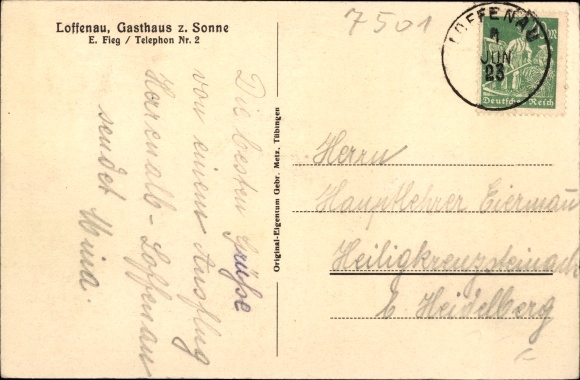 Loffenau, Gasthaus z. Sonne
E. Fieg / Telephon Nr. 2
7501
LOFFENAU
JUN
23
Deutsches Reich
Die besten Grüße
von einem Ausflug
Herrenalb-Loffenau
sendet Mina.
Original-Eigentum Gebr. Metz, Tübingen
Herrn
Hauptlehrer Eiermann
Heiligkreuzsteinach
b. Heidelberg